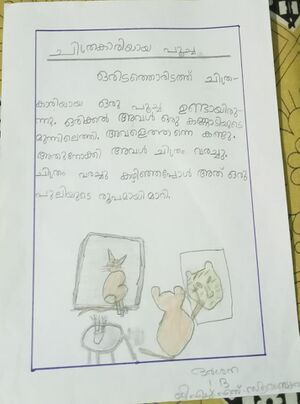 ചിത്രകാരിയായ പൂച്ച
ഒരിടത്തൊരിടത്ത് ചിത്ര-
കാരിയായ ഒരു പൂച്ച ഉണ്ടായിരു-
ന്നു. ഒരിക്കൽ അവൾ ഒരു കണ്ണാടിയുടെ
മുന്നിലെത്തി. അവളെത്തന്നെ കണ്ടു.
അതുനോക്കി അവൾ ചിത്രം വരച്ചു.
ചിത്രം വരച്ചു കഴിഞ്ഞപ്പോൾ അത് ഒരു
പുലിയുടെ രൂപമായി മാറി.
ദർശന